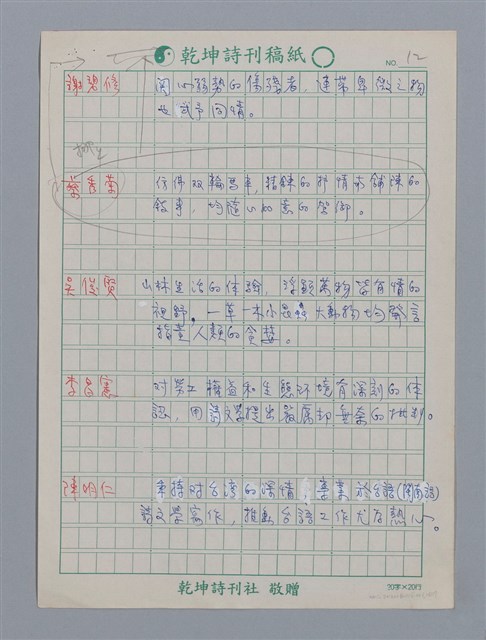 乾坤詩刊稿紙
NO. 12
謝碧修 關心弱勢的保殘者,連帶卑微之物
也賦予同情。
蔡秀菊 彷彿双輪馬車,精鍊的抒情和鋪陳的
敘事,均隨心如意的駕御。
吳俊賢 山林生活的体驗,浮顯萬物皆有情的
視野,一草一木小昆虫大動物均發言
指責人類的貪婪。
李昌憲 對勞工權益和生態环境有深刻的体
認,用詩文學提出嚴厲却無奈的批判。
陳明仁 秉持对台湾的深情,專業於台語(閩南語)
詩文學寫作,推動台語工作尤有熱心。
乾坤詩刊社 敬贈
20字×20行